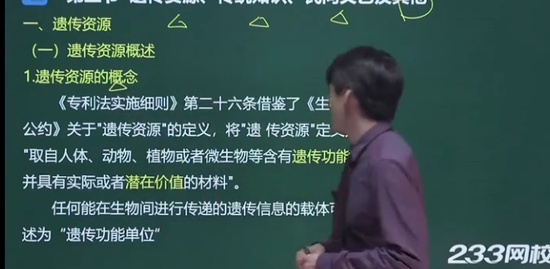 遗传资源、传统知识、民间文艺及其他
一、遗传资源
（一）遗传资源概述
1.遗传资源的概念
《专利法实施细则》第二十六条借鉴了《生
公约》关于"遗传资源"的定义，将"遗 传资源"定义
"取自人体、动物、植物或者微生物等含有遗传功能
并具有实际或者潜在价值的材料"。
任何能在生物间进行传递的遗传信息的载体
述为“遗传功能单位”
233网校